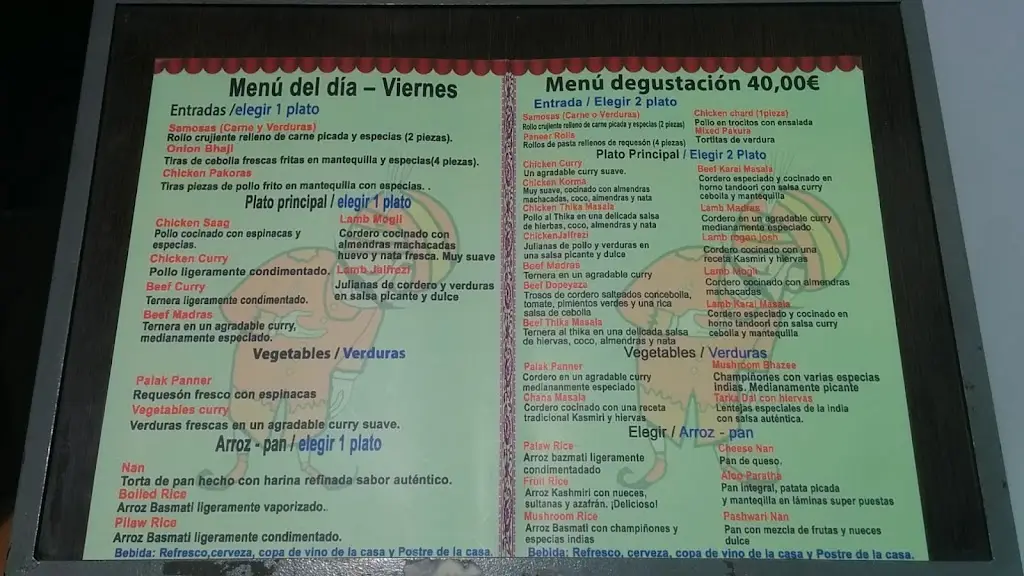 Menú del día – Viernes
Entradas /elegir 1 plato
Samosas (Carne y Verduras)
Rollo crujiente relleno de carne picada y especias (2 piezas).
Onion Bhaji
Tiras de cebolla frescas fritas en mantequilla y especias(4 piezas).
Chicken Pakoras
Tiras piezas de pollo frito en mantequilla con especias. .
Plato principal / elegir 1 plato
Chicken Saag
Pollo cocinado con espinacas y
especias.
Chicken Curry
Pollo ligeramente condimentado.
Beef Curry
Ternera ligeramente condimentado.
Beef Madras
Ternera en un agradable curry,
medianamente especiado.
Lamb Mogli
Cordero cocinado con
almendras machacadas
huevo y nata fresca. Muy suave
Lamb Jalfrezi
Julianas de cordero y verduras
en salsa picante y dulce
Vegetables / Verduras
Palak Panner
Requesón fresco con espinacas
Vegetables curry
Verduras frescas en un agradable curry suave.
Arroz - pan / elegir 1 plato
Nan
Torta de pan hecho con harina refinada sabor auténtico.
Boiled Rice
Arroz Basmati ligeramente vaporizado..
Pilaw Rice
Arroz Basmati ligeramente condimentado.
Bebida: Refresco,cerveza, copa de vino de la casa y Postre de la casa.
Menú degustación 40,00€
Entrada / Elegir 2 plato
Samosas (Carne o Verduras)
Rollo crujiente relleno de carne picada y especias (2 piezas)
Paneer Rolls
Rollos de pasta rellenos de requesón (4 piezas)
Chicken chard (1piezs)
Pollo en trocitos con ensalada
Mixed Pakura
Tortitas de verdura
Plato Principal / Elegir 2 Plato
Chicken Curry
Un agradable curry suave.
Chicken Korma
Muy suave, cocinado con almendras
machacadas, coco, almendras y nata
Chicken Thika Masala
Pollo al Thika en una delicada salsa
de hierbas, coco, almendras y nata
ChickenJalfrezi
Julianas de pollo y verduras en
una salsa picante y dulce
Beef Madras
Ternera en un agradable curry
Beef Dopeyeza
Trosos de cordero salteados concebolla,
tomate, pimientos verdes y una rica
salsa de cebolla
Beef Thika Masala
Ternera al thika en una delicada salsa
de hiervas, coco, almendras y nata
Beef Karai Masala
Cordero especiado y cocinado en
horno tandoori con salsa curry
cebolla y mantequilla
Lamb Madras
Cordero en un agradable curry
medianamente especiado
Lamb rogan josh
Cordero cocinado con una
receta Kasmiri y hiervas
Lamb Mogli
Cordero cocinado con almendras
machacadas
Lamb Karai Masala
Cordero especiado y cocinado en
horno tandoori con salsa curry
cebolla y mantequilla
Vegetables / Verduras
Palak Panner
Cordero en un agradable curry
medianamente especiado
Chana Masala
Cordero cocinado con una receta
tradicional Kasmiri y hiervas
Mushroom Bhazee
Champiñones con varias especias
indias. Medianamente picante
Tarka Dal con hiervas
Lentejas especiales de la india
con salsa auténtica.
Elegir / Arroz - pan
Palaw Rice
Arroz bazmati ligeramente
condimentadado
Fruit Rice
Arroz Kashmiri con nueces,
sultanas y azafrán. ¡Delicioso!
Mushroom Rice
Arroz Basmati con champiñones y
especias indias
Cheese Nan
Pan de queso.
Aloo Paratha
Pan integral, patata picada
y manteqilla en láminas super puestas
Pashwari Nan
Pan con mezcla de frutas y nueces
dulce
Bebida: Refresco, cerveza, copa de vino de la casa y Postre de la casa.